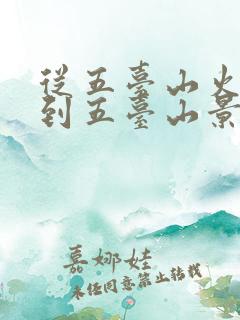 從五臺山火
到五臺山景
慕娜娃
未经同意禁止转载